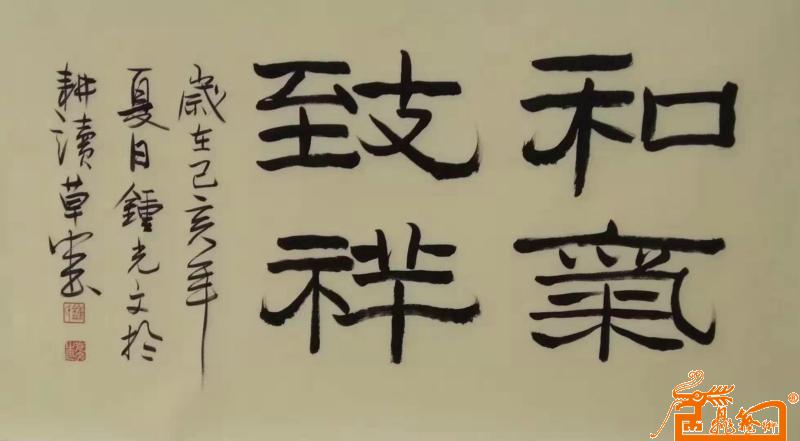 和氣
致祥
歲在己亥年
夏月鍾光文於
耕讀草堂